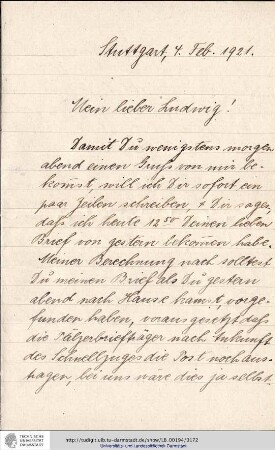 Stuttgart, 4. Feb. 1921.
Mein lieber Ludwig!
Damit Du wenigstens morgen
abend einen Gruss von mir be-
komst, will ich Dir sofort ein
paar Zeilen schreiben, & Dir sagen,
dass ich heute 12 50 Deinen lieben
Brief von gestern bekomen habe.
Meiner Berechnung nach solltest
Du meinen Brief als Du gestern
abend nach Hause kamst, vorge-
funden haben, vorausgesetzt dass
die Pälzerbriefträger nach Ankunft
des Schnellzuges die Post noch aus-
tragen, bei uns wäre dies ja selbst-
http://tudigit.ulb.tu-darmstadt.de/show/LB_00194/0172
Universitäts- und Landesbibliothek Darmstadt